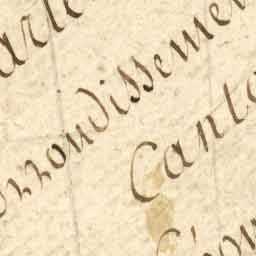 arte
rrondissemen
Canto